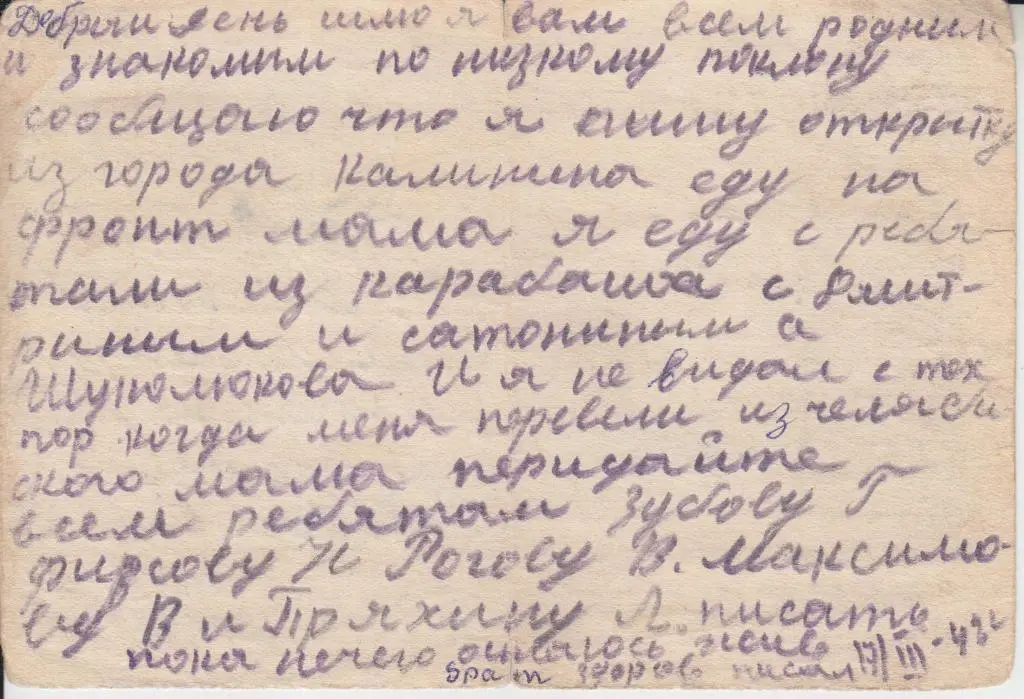 Добрый день шлю я вам всем родным
и знакомым по низкому поклону
сообщаю что я пишу открытку
из города Калинина еду на
фронт мама я еду с ребя-
тами из карабаша с Дмит-
риным и сатониным а
Шупомокова И я не видал с тех
пор когда меня перевели из челяби
ского мама перидайте
всем ребятам Зубову Г
фирсову Н Рогову В. Максимо-
ву В и Пряхину Л. писать
пока нечего остаюсь жив
брат здоров писал 17/III-43г